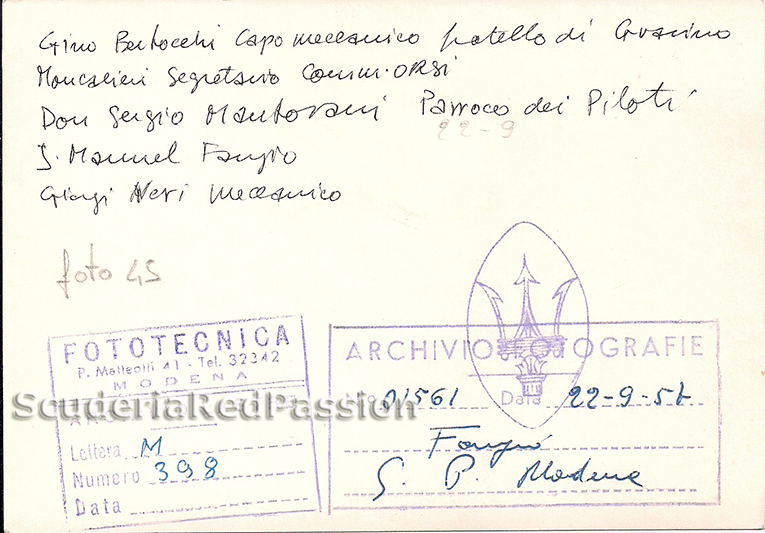 Gino Bertocchi Capo meccanico fratello di Guerino
Moncalieri Segretario Comm. ORSI
Don Sergio Mantovani Parroco dei Piloti
22-9
J. Manuel Fangio
Giorgi Neri meccanico
foto 45
FOTOTECNICA
P. Matteotti 41 - Tel. 32342
MODENA
ARCHIVIO FOTOGRAFIE
01561 Data 22-9-57
ScuderiaRedPassion
Lettera M
Numero 398
Data
Fangio
G. P. Modena